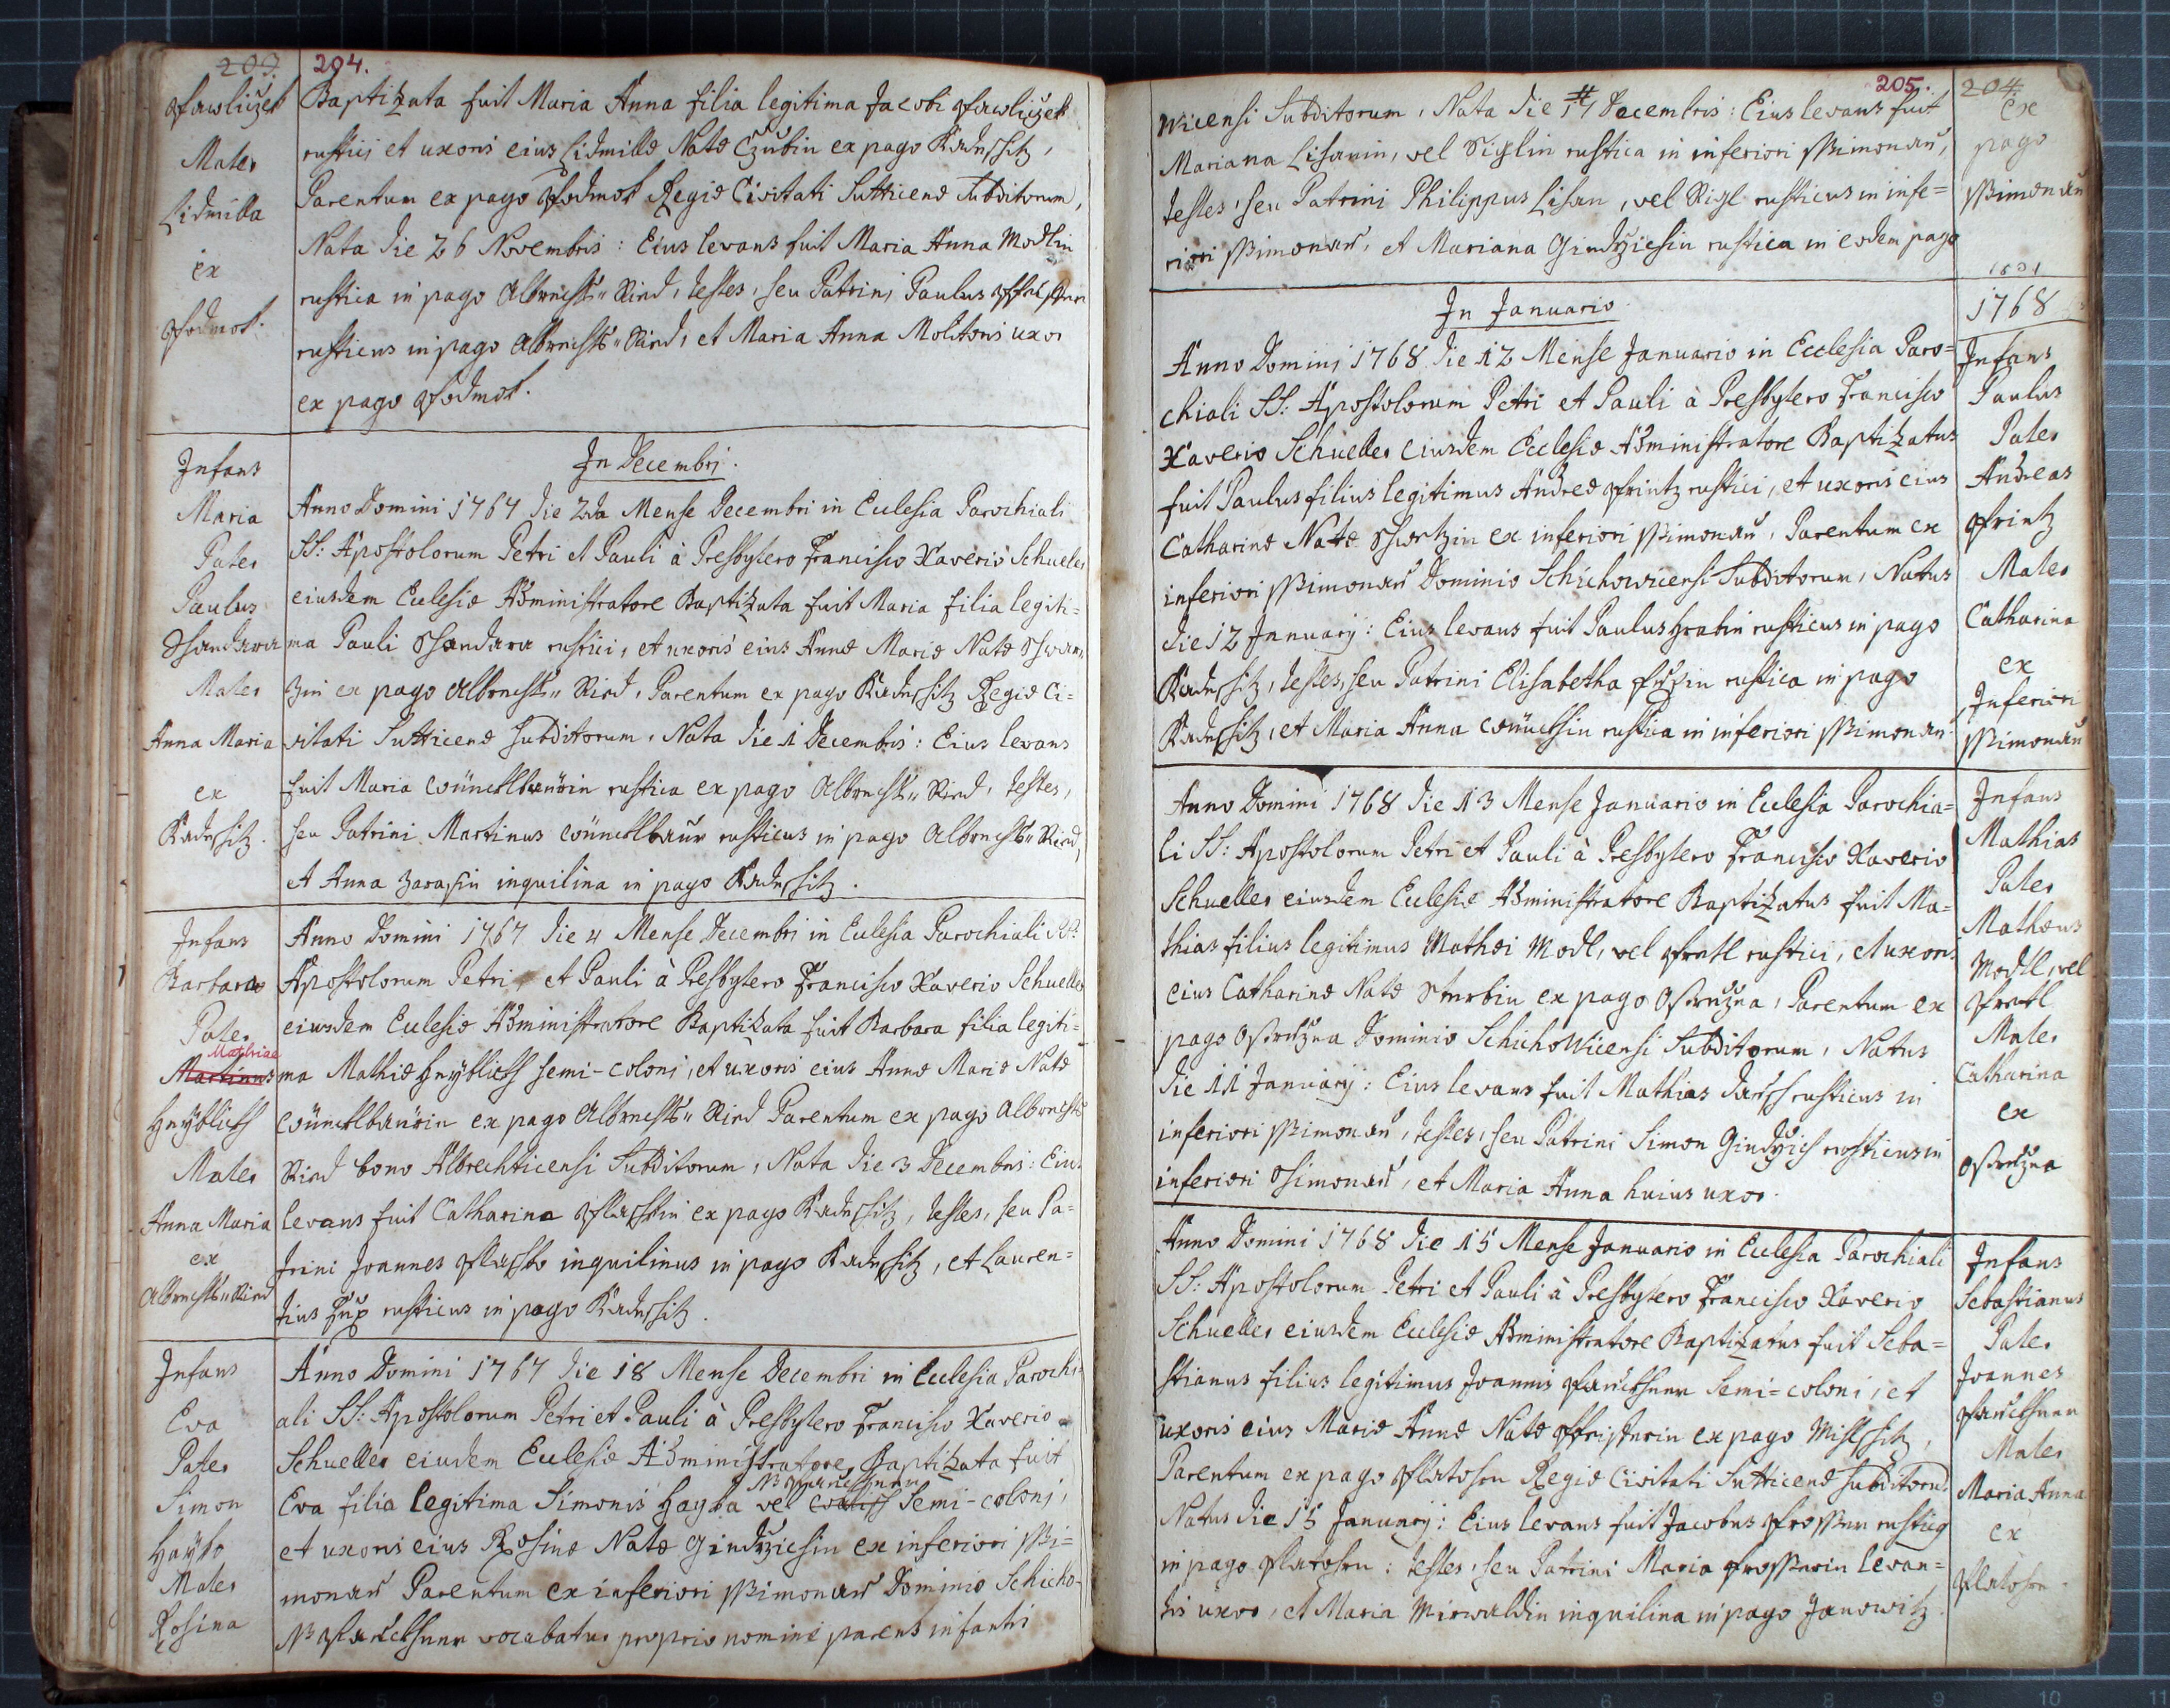 203. 204.
Pawliczek
Mater
Lidmilla
ex
Podmok.
Baptizata fuit Maria Anna filia legitima Jacobi Pawliczek
rustici et uxoris eius Lidmillæ Natæ Czubin ex pago Kadeschitz,
Parentum ex pago Podmok Regiæ Civitati Sutticenæ Subditorum,
Nata die 26 Novembris: Eius levans fuit Maria Anna Modlin
rustica in pago Albrechts-Ried, testes, seu Patrini Paulus
rusticus in pago Albrechts-Ried, et Maria Anna Molitoris uxor
ex pago Podmok.
In Decembri.
Infans
Maria
Pater
Paulus
Schandara
Mater
Anna Maria
ex
Kadeschitz.
Anno Domini 1767 die 2da Mense Decembri in Ecclesia Parochiali
SS: Apostolorum Petri et Pauli à Presbytero Francisco Xaverio Schueller
eiusdem Ecclesiæ Administratore Baptizata fuit Maria filia legiti=
ma Pauli Schandara rustici, et uxoris eius Annæ Mariæ Natæ Schwar=
zin ex pago Albrechts-Ried, Parentum ex pago Kadeschitz Regiæ Ci=
vitati Sutticenæ Subditorum, Nata die 1 Decembris: Eius levans
fuit Maria Cünetlbaurin rustica ex pago Albrechts-Ried, testes,
seu Patrini Martinus Cünetlbaur rusticus in pago Albrechts-Ried,
et Anna inquilina in pago Kadeschitz.
Infans
Barbara
Pater
Mathias
Martinus
Hnyblich
Mater
Anna Maria
ex
Albrechts-Ried
Anno Domini 1767 die 4 Mense Decembri in Ecclesia Parochiali SS:
Apostolorum Petri et Pauli à Presbytero Francisco Xaverio Schueller
eiusdem Ecclesiæ Administratore Baptizata fuit Barbara filia legiti=
ma Mathiæ Hnyblich semi-coloni, et uxoris eius Annæ Mariæ Natæ
Cünetlbaurin ex pago Albrechts-Ried Parentum ex pago Albrechts
Ried bono Albrechticensi Subditorum, Nata die 3 Decembris: Eius
levans fuit Catharina Plaschkin ex pago Kadeschitz, testes, seu Pa=
trini Joannes Plaschko inquilinus in pago Kadeschitz, et Lauren=
tius Fux rusticus in pago Kadeschitz.
Infans
Eva
Pater
Simon
Hayko
Mater
Rosina
Anno Domini 1767 die 18 Mense Decembri in Ecclesia Parochi=
ali SS: Apostolorum Petri et Pauli à Presbytero Francisco Xaverio
Schueller eiusdem Ecclesiæ Administratore Baptizata fuit
NB
Eva filia legitima Simonis Hayka vel semi-coloni,
et uxoris eius Rosinæ Natæ Gindrzichin ex inferiori Ssi=
monau Parentum ex inferiori Ssimonau Dominio Schicho=
NB vocabatur proprio nomine parens infantis
205. 204.
wicensi Subditorum, Nata die 17 Decembris: Eius levans fuit
Mariana Lisanin, vel Siglin rustica in inferiori Ssimonau,
testes, seu Patrini Philippus Lisan, vel Sigl rusticus in infe=
riori Ssimonau, et Mariana Gindrzichin rustica in eodem pago
ex
pago
Ssimonau
1768
In Januario.
Anno Domini 1768 die 12 Mense Januario in Ecclesia Paro=
chiali SS: Apostolorum Petri et Pauli à Presbytero Francisco
Xaverio Schueller eiusdem Ecclesiæ Administratore Baptizatus
fuit Paulus filius legitimus Andreæ Printz rustici, et uxoris eius
Catharinæ Natæ Schwartzin ex inferiori Ssimonau, Parentum ex
inferiori Ssimonau Dominio Schichowicensi Subditorum, Natus
die 12 January: Eius levans fuit Paulus Hrabin rusticus in pago
Kadeschitz, testes, seu Patrini Elisabetha Fuxin rustica in pago
Kadeschitz, et Maria Anna rustica in inferiori Ssimonau
Infans
Paulus
Pater
Andreas
Printz
Mater
Catharina
ex
Inferiori
Ssimonau
Anno Domini 1768 die 13 Mense Januario in Ecclesia Parochia=
li SS: Apostolorum Petri et Pauli à Presbytero Francisco Xaverio
Schueller eiusdem Ecclesiæ Administratore Baptizatus fuit Ma=
thias filius legitimus Mathæi Modl, vel Pratl rustici, et uxoris
eius Catharinæ Natæ ex pago Ostružna, Parentum ex
pago Ostružna Dominio Schichowicensi Subditorum, Natus
die 11 January: Eius levans fuit Mathias rusticus in
inferiori Ssimonau, testes, seu Patrini Simon Gindrzich rusticus in
inferiori Ssimonau, et Maria Anna huius uxor.
Infans
Mathias
Pater
Mathæus
Modl, vel
Pratl
Mater
Catharina
ex
Ostružna
Anno Domini 1768 die 15 Mense Januario in Ecclesia Parochiali
SS: Apostolorum Petri et Pauli à Presbytero Francisco Xaverio
Schueller eiusdem Ecclesiæ Administratore Baptizatus fuit Seba=
stianus filius legitimus Joannis semi-coloni, et
uxoris eius Mariæ Annæ Natæ ex pago
Parentum ex pago Platohorn Regiæ Civitati Sutticenæ Subditorum
Natus die 15 January: Eius levans fuit Jacobus rusticus
in pago Platohorn: testes, seu Patrini Maria levan=
tis uxor, et Maria Mirwaldin inquilina in pago Janowitz
Infans
Sebastianus
Pater
Joannes
Mater
Maria Anna
ex